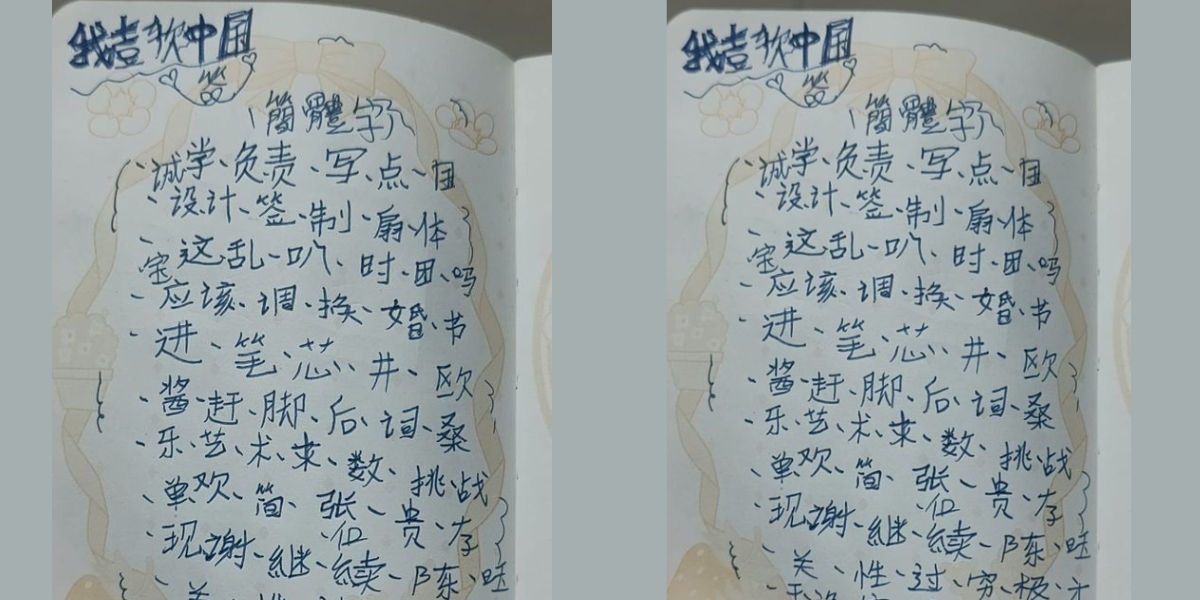 我喜欢中国
签
簡體字
诚学、负责、写、点、国
设计、签、制、扇、体
这乱、叭、时、团、吗
宝
应该、调、换、婚、节
进、笔、芯、井、欧
酱、赶、脚、后、词、桑
乐、艺、术、来、数、挑战
单欢、简、张、位、贵、存
现、谢、継、続、陈
关
我喜欢中国
签
簡體字
诚学、负责、写、点、国
设计、签、制、扇、体
这乱、叭、时、团、吗
宝
应该、调、换、婚、节
进、笔、芯、井、欧
酱、赶、脚、后、词、桑
乐、艺、术、来、数、挑战
单欢、简、张、位、贵、存
现、谢、継、続、陈
关、性、过、穷、极、才